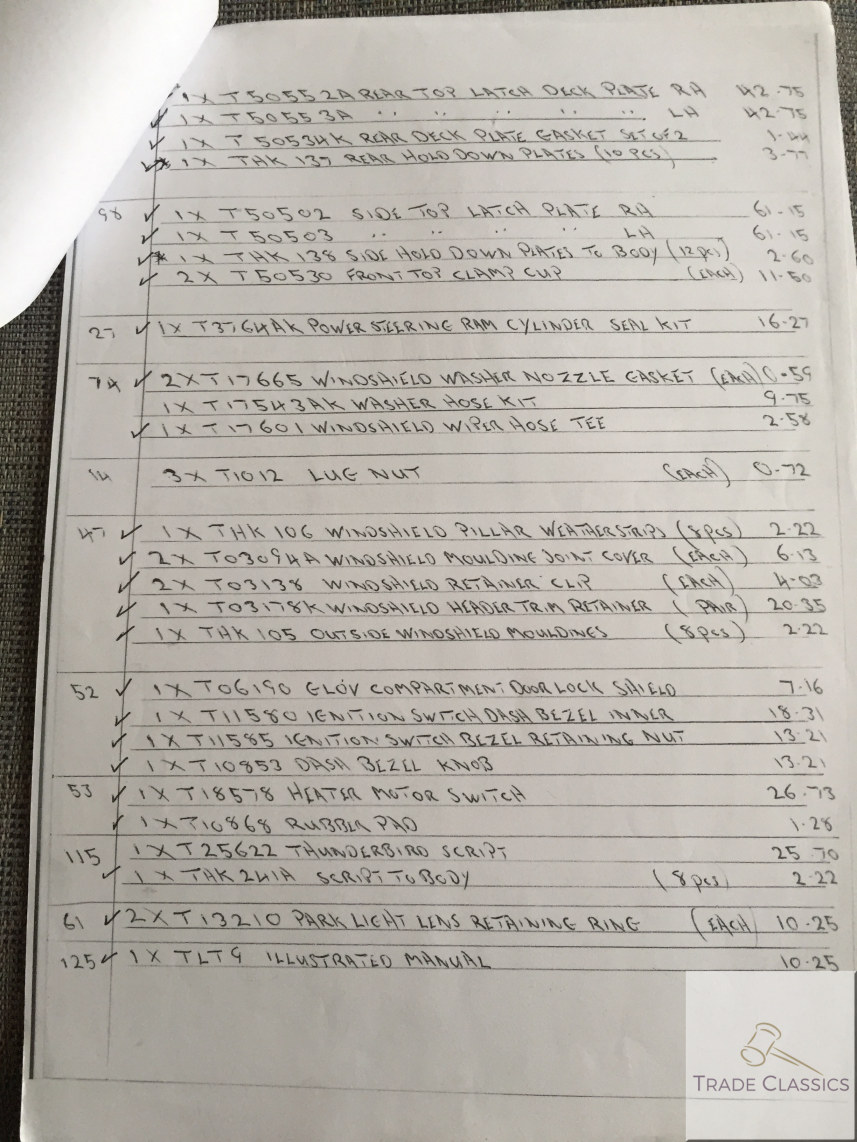 1 X T50552A REAR TOP LATCH DECK PLATE RH 42.75
✓ 1 X T50553A " " " " " LH 42.75
✓ 1 X T50534K REAR DECK PLATE GASKET SET OF 2 1.44
✓* 1X THK 137 REAR HOLD DOWN PLATES (10 PCS) 3.77
98 ✓ 1X T50502 SIDE TOP LATCH PLATE RH 61.15
✓ 1X T50503 " " " " LH 61.15
✓* 1X THK 138 SIDE HOLD DOWN PLATES TO BODY (12 pcs) 2.60
✓ 2X T50530 FRONT TOP CLAMP CUP (EACH) 11.50
27 ✓ 1X T3764AK POWER STEERING RAM CYLINDER SEAL KIT 16.27
74 ✓ 2X T17665 WINDSHIELD WASHER NOZZLE GASKET (EACH) 0.59
1X T17543AK WASHER HOSE KIT 9.75
✓ 1X T17601 WINDSHIELD WIPER HOSE TEE 2.58
14 3X T1012 LUG NUT (EACH) 0.72
47 ✓ 1X THK 106 WINDSHIELD PILLAR WEATHERSTRIPS (8pcs) 2.22
✓ 2X T03094A WINDSHIELD MOULDING JOINT COVER (EACH) 6.13
✓ 2X T03138 WINDSHIELD RETAINER CLIP (EACH) 4.03
✓ 1X T03178K WINDSHIELD HEADER TRIM RETAINER (PAIR) 20.35
✓ 1X THK 105 OUTSIDE WINDSHIELD MOULDINGS (8pcs) 2.22
52 ✓ 1X T06190 GLOV COMPARTMENT DOOR LOCK SHIELD 7.16
✓ 1X T11580 IGNITION SWITCH DASH BEZEL INNER 18.31
✓ 1X T11585 IGNITION SWITCH BEZEL RETAINING NUT 13.21
✓ 1X T10853 DASH BEZEL KNOB 13.21
53 ✓ 1X T18578 HEATER MOTOR SWITCH 26.73
✓ 1X T10868 RUBBER PAD 1.28
115 1X T25622 THUNDERBIRD SCRIPT 25.70
✓ 1X THK 241A SCRIPT TO BODY (8 pcs) 2.22
61 ✓ 2X T13210 PARK LIGHT LENS RETAINING RING (EACH) 10.25
125 ✓ 1X TLT9 ILLUSTRATED MANUAL 10.25
TRADE CLASSICS